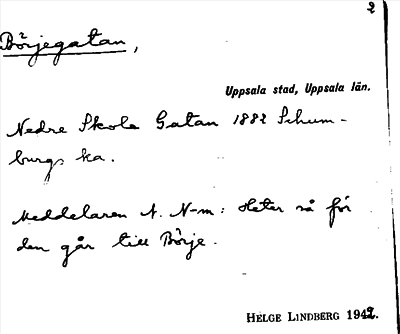 2
Börjegatan,
Uppsala stad, Uppsala län.
Nedre Skole Gatan 1882 Schum-
burgs ka.
Meddelaren A. N-m: Heter så för
den går till Börje.
HELGE LINDBERG 1942.